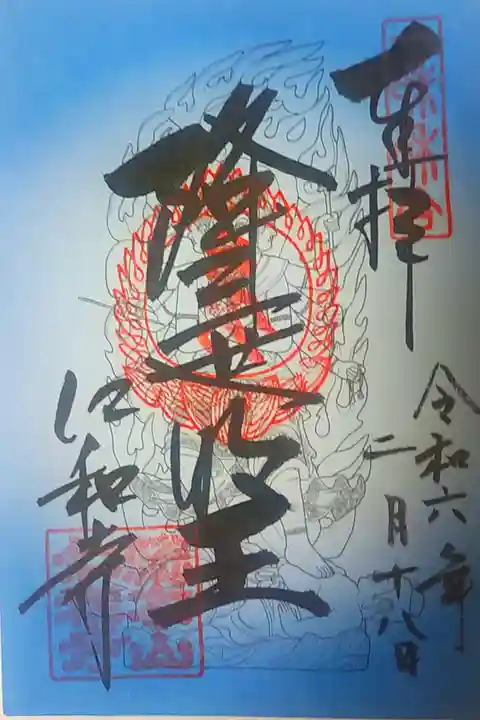 奉拝
令和六年
二月十八日
降三世明王
仁和寺